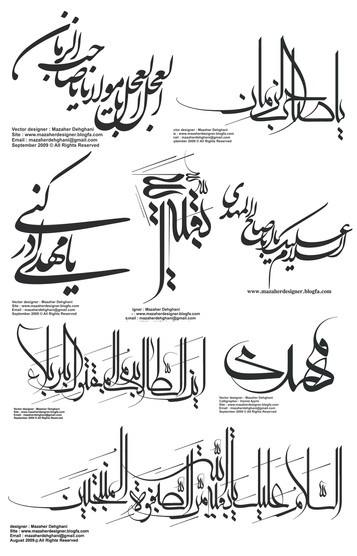 العجل العجل یا مولانا یا صاحب الزمان
Vector designer : Mazaher Dehghani
Site : www.mazaherdesigner.blogfa.com
Email : mazaherdehghani@gmail.com
September 2009 © All Rights Reserved
یا صاحب الزمان
ctor designer : Mazaher Dehghani
e : www.mazaherdesigner.blogfa.com
ail : mazaherdehghani@gmail.com
ptember 2009 © All Rights Reserved
یا مهدی ادرکنی
Vector designer : Mazaher Dehghani
Site : www.mazaherdesigner.blogfa.com
Email : mazaherdehghani@gmail.com
September 2009 © All Rights Reserved
بقیة الله
igner : Mazaher Dehghani
: www.mazaherdesigner.blogfa.com
Email : mazaherdehghani@gmail.com
السلام علیک یا اباصالح المهدی
www.mazaherdesigner.blogfa.com
این الطالب بدم المقتول بکربلا
Vector designer : Mazaher Dehghani
Site : www.mazaherdesigner.blogfa.com
Email : mazaherdehghani@gmail.com
September 2009 © All Rights Reserved
مهدی
Vector designer : Mazaher Dehghani
Site : www.mazaherdesigner.blogfa.com
Email : mazaherdehghani@gmail.com
September 2009 © All Rights Reserved
السلام علیک یا بقیة الله من الصفوة المنتجبین
designer : Mazaher Dehghani
www.mazaherdesigner.blogfa.com
Email : mazaherdehghani@gmail.com
August 2009 © All Rights Reserved